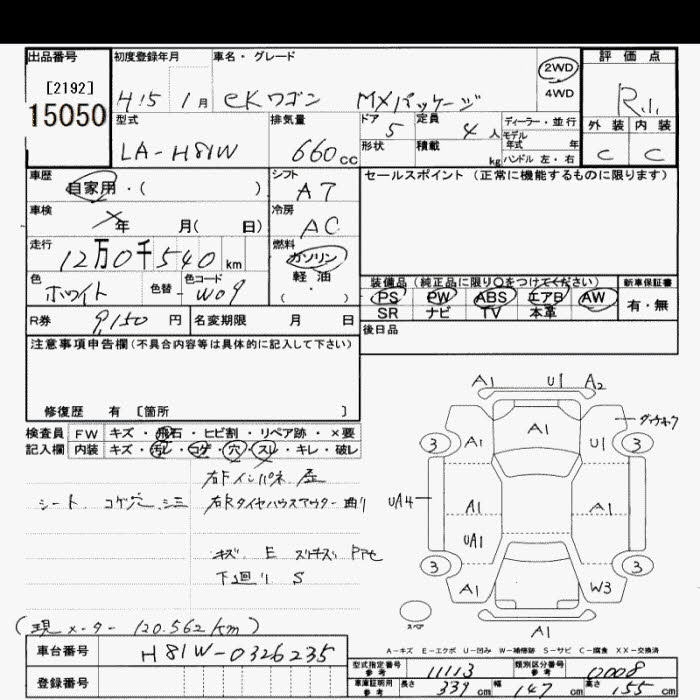 出品番号 初度登録年月 車名・グレード 評価点
[2192] 2WD
15050 H15 1月 eKワゴン MXパッケージ 4WD R.1.
型式 排気量 ドア 5 定員 4人 ディーラー・並行 外装 内装
モデル年式 年
LA-H81W 660cc 形状 積載 kg ハンドル 左・右 C C
車歴 シフト セールスポイント (正常に機能するものに限ります)
自家用・( ) AT
車検 冷房
年 月( 日) AC
走行 燃料
12万0千540km ガソリン
色 色替 色コード 軽・油 装備品 (純正品に限り○をつけてください) 新車保証書
ホワイト W09 ( ) PS PW ABS エアB AW 有・無
SR ナビ TV 本革
R券 9,150円 名変期限 月 日 後日品
注意事項申告欄(不具合内容等は具体的に記入して下さい)
修復歴 有 〔箇所 〕
検査員 FW キズ・飛石・ヒビ割・リペア跡・×要
記入欄 内装 キズ・汚レ・コゲ・穴・スレ・キレ・破レ
右Fインパネ
シート コゲ穴 シミ 右Rタイヤハウスアウター曲り
キズ E スリキズ
下回り S
A1 U1 A2
A1
3 A1 U1 3
UA4 A1 A1
UA1
3 3
A1 W3
スペア A1
A-キズ E-エクボ U-凹み W-補修跡 S-サビ C-腐食 XX-交換済
(現メーター 120.562km)
車台番号 H81W-0326235
登録番号
型式指定番号 参考 11113 類別区分番号 参考 0008
車庫証明用 参考 長さ 339cm 幅 147cm 高さ 55cm